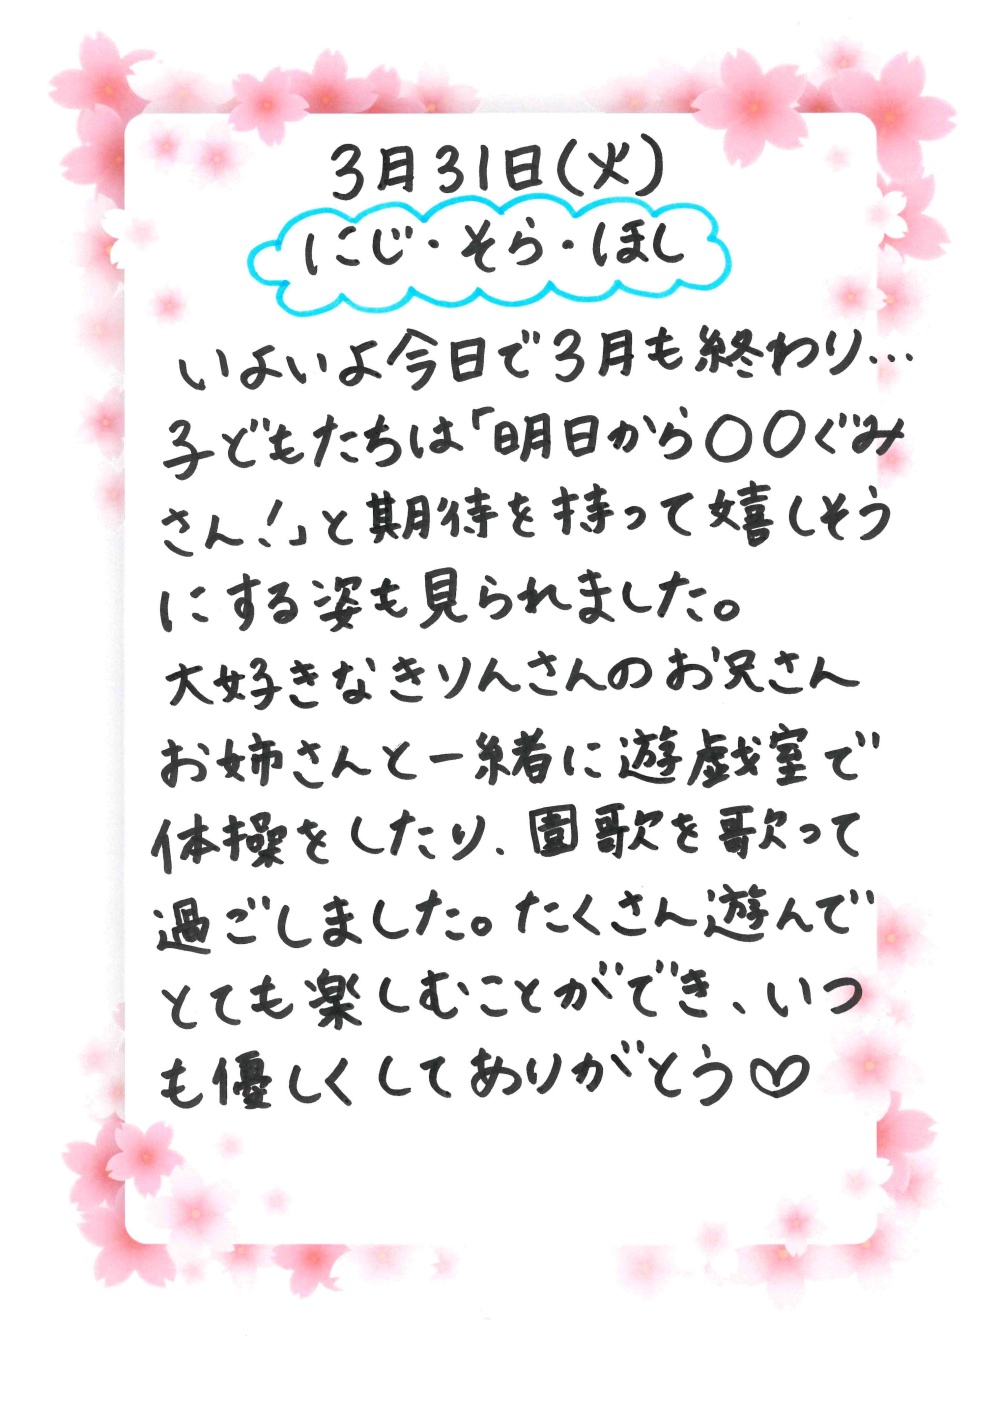 3月31日(火)
にじ・そら・ほし
いよいよ今日で3月も終わり…
子どもたちは「明日から〇〇ぐみ
さん!」と期待を持って嬉しそう
にする姿も見られました。
大好きなきりんさんのお兄さん
お姉さんと一緒に遊戯室で
体操をしたり、園歌を歌って
過ごしました。たくさん遊んで
とても楽しむことができ、いつ
も優しくしてありがとう♡